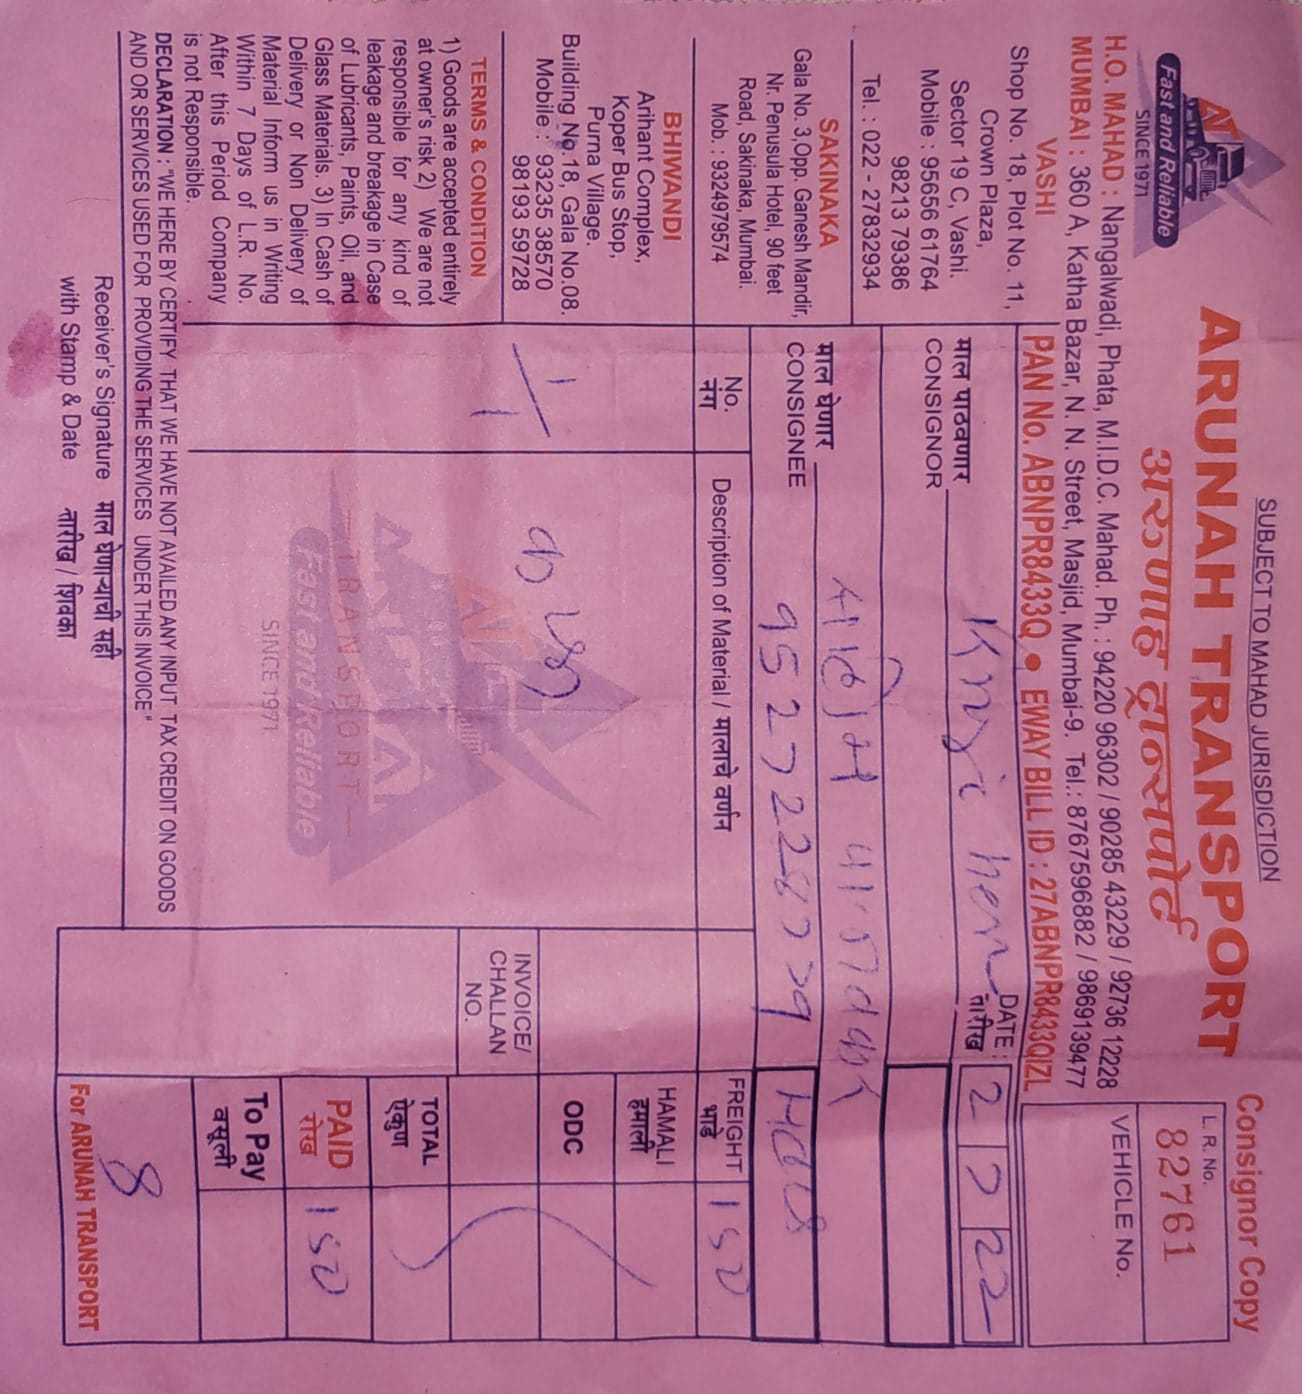 SUBJECT TO MAHAD JURISDICTION
Consignor Copy
AT
Fast and Reliable
SINCE 1971
ARUNAH TRANSPORT
अरुणाह ट्रान्सपोर्ट
L. R. No.
82761
VEHICLE No.
H.O. MAHAD : Nangalwadi, Phata, M.I.D.C. Mahad. Ph. : 94220 96302 / 90285 43229 / 92736 12228
MUMBAI : 360 A, Katha Bazar, N. N. Street, Masjid, Mumbai-9. Tel.: 8767596882 / 9869139477
PAN No. ABNPR8433Q ● EWAY BILL ID : 27ABNPR8433QIZL
VASHI
Shop No. 18, Plot No. 11,
Crown Plaza,
Sector 19 C, Vashi.
Mobile : 95656 61764
98213 79386
Tel. : 022 - 27832934
SAKINAKA
Gala No. 3,Opp. Ganesh Mandir,
Nr. Penusula Hotel, 90 feet
Road, Sakinaka, Mumbai.
Mob. : 9324979574
BHIWANDI
Arihant Complex,
Koper Bus Stop,
Purna Village.
Building No.18, Gala No.08.
Mobile : 93235 38570
98193 59728
TERMS & CONDITION
1) Goods are accepted entirely
at owner's risk 2) We are not
responsible for any kind of
leakage and breakage in Case
of Lubricants, Paints, Oil, and
Glass Materials. 3) In Cash of
Delivery or Non Delivery of
Material Inform us in Writing
Within 7 Days of L.R. No.
After this Period Company
is not Responsible.
माल पाठवणार
CONSIGNOR
DATE :
तारीख
2 7 22
माल घेणार
CONSIGNEE
No.
नंग
Description of Material / मालाचे वर्णन
FREIGHT
भाडे
150
HAMALI
हमाली
ODC
INVOICE/
CHALLAN
NO.
TOTAL
ऐकुण
PAID
रोख
150
To Pay
वसूली
TRANSPORT
Fast and Reliable
SINCE 1971
DECLARATION : "WE HERE BY CERTIFY THAT WE HAVE NOT AVAILED ANY INPUT TAX CREDIT ON GOODS
AND OR SERVICES USED FOR PROVIDING THE SERVICES UNDER THIS INVOICE."
Receiver's Signature माल घेणाऱ्याची सही
with Stamp & Date तारीख / शिक्का
For ARUNAH TRANSPORT